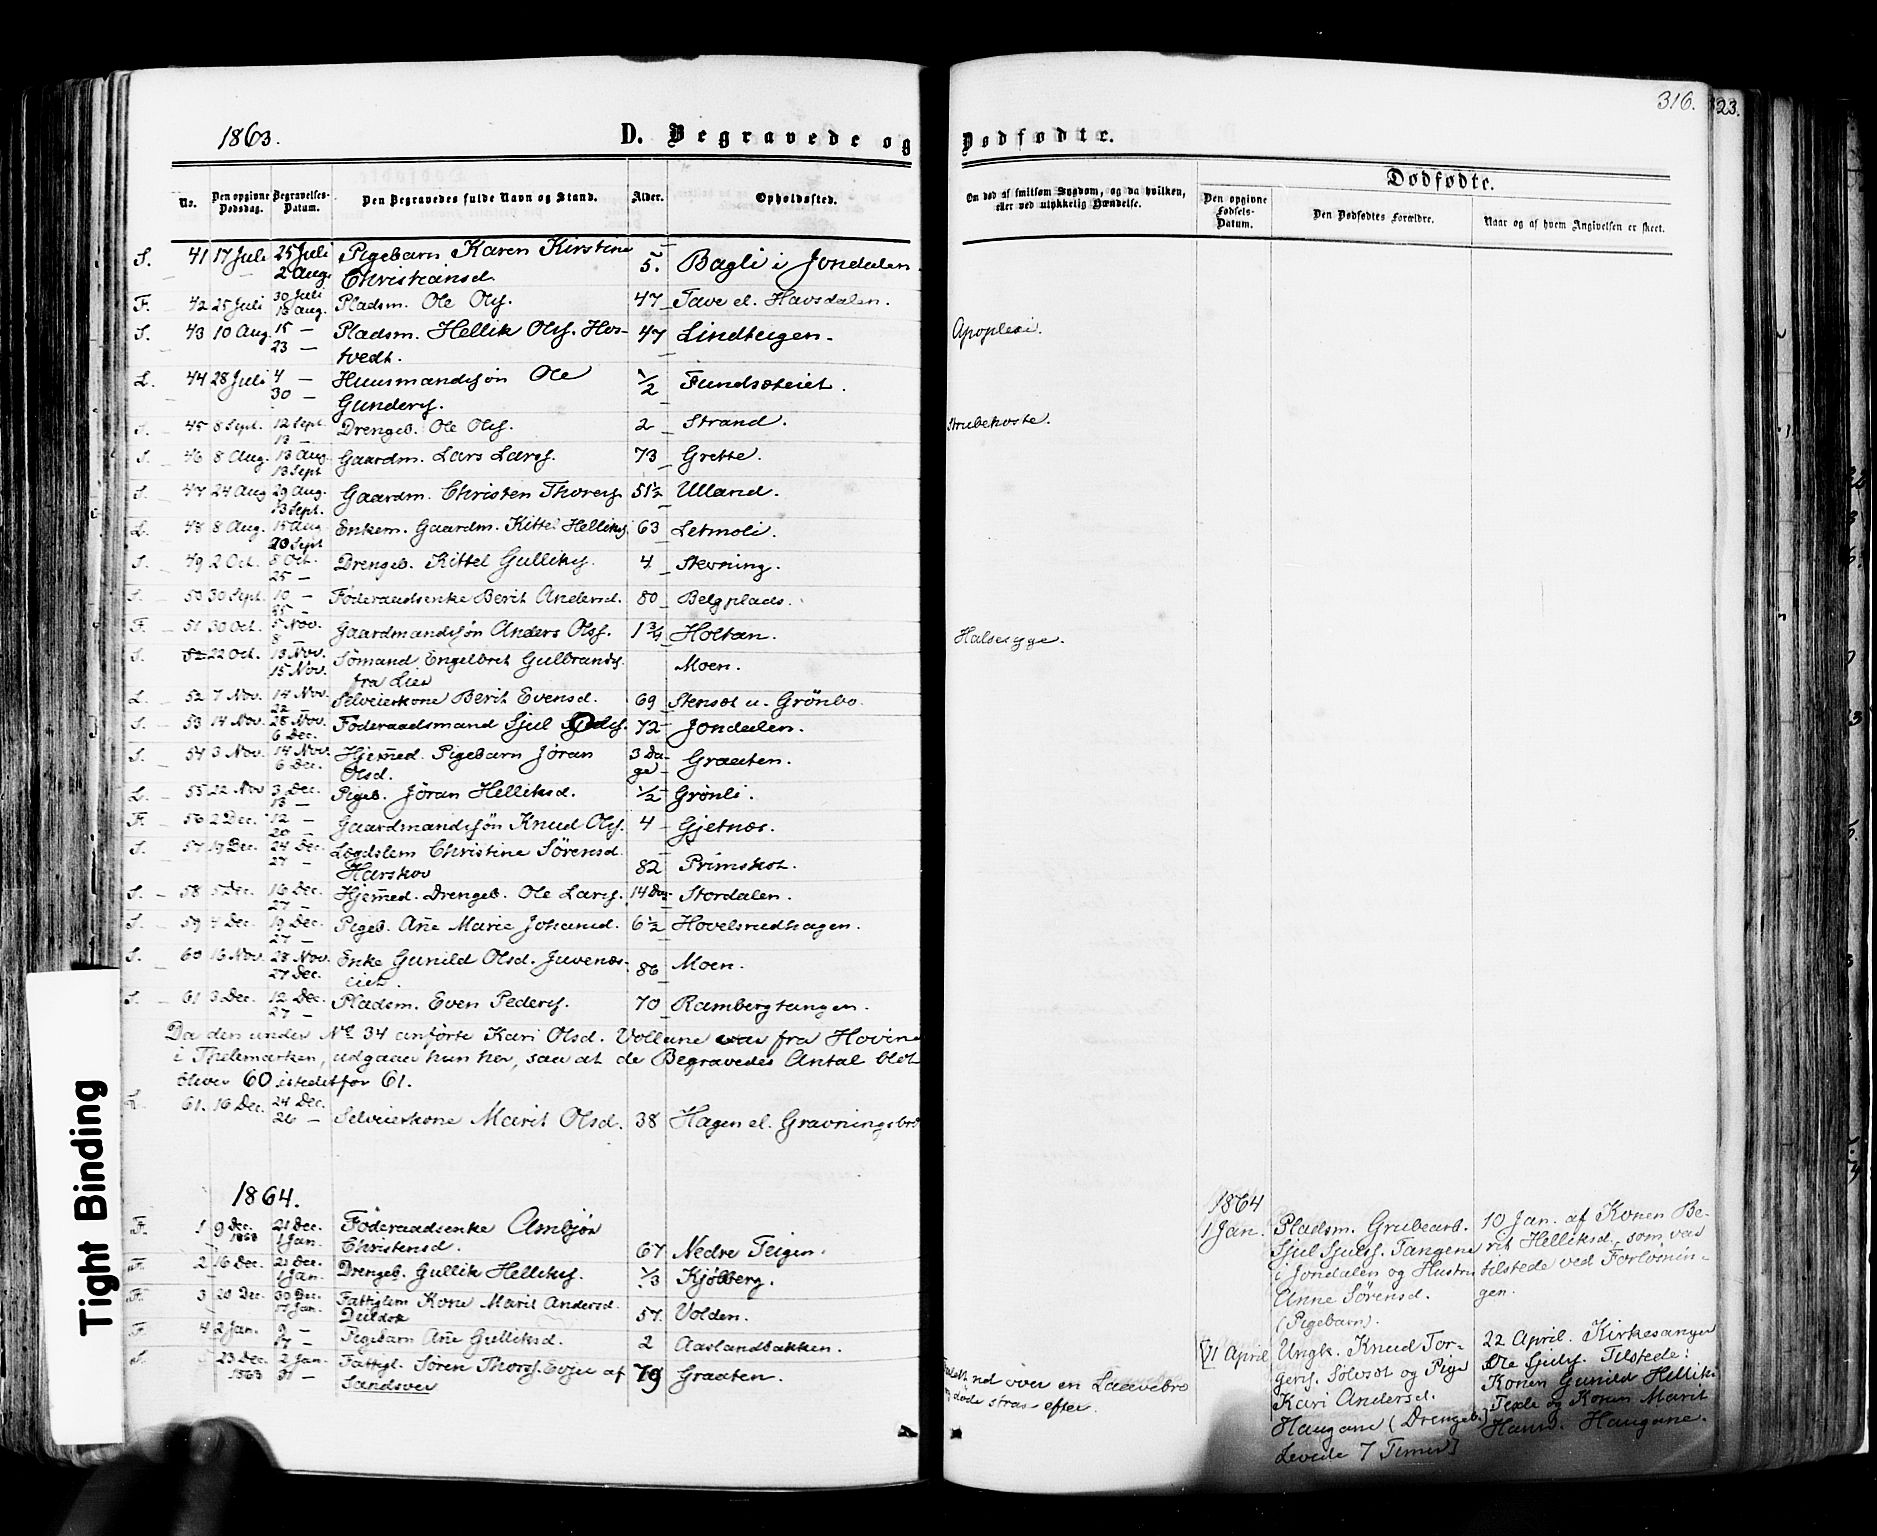 316. 323.
1863. D. Begravede og Dødfødte.
No. Den opgivne Dødsdag. Begravelses-Datum. Den Begravedes fulde Navn og Stand. Alder. Opholdssted. Om død af smitsom Sygdom, og da hvilken, eller ved ulykkelig Hændelse. Dødfødte.
Den opgivne Fødsels-Datum. Den Dødfødtes Forældre. Naar og af hvem Angivelsen er skeet.
S. 41 17 Juli 25 Juli Pigebarn Karen Kirstine
2 Aug. Christiansd. 5. Bagli i Jondalen.
F. 42 25 Juli 30 Juli Pladsm. Ole Ols. 47 Tave el. Havsdalen.
16 Aug.
S. 43 10 Aug. 15 — Pladsm. Hellik Ols. Hos- 47 Lindteigen. Apoplexi.
23 — tvedt.
L. 44 28 Juli 4 — Huusmandssøn Ole 1/2 Fundsæteiet.
30 — Gunders.
S. 45 8 Sept. 12 Sept. Drengeb. Ole Ols. 2 Strand. Strubehoste.
13 —
S. 46 8 Aug. 13 Aug. Gaardm. Lars Lars. 73 Grette.
13 Sept.
S. 47 24 Aug 29 Aug. Gaardm. Christen Thorers. 51 1/2 Ulland.
13 Sept.
L. 48 8 Aug. 15 Aug. Enkem. Gaardm. Kittel Helliks. 63 Letmoli.
20 Sept
S. 49 2 Oct. 8 Oct. Drengeb. Kittel Gulliks. 4 Stevning.
25 —
S. 50 30 Sept. 10 — Føderaadsenke Berit Andersd. 80 Belgplads.
25 —
F. 51 30 Oct. 5 Nov. Gaardmandssøn Anders Ols. 1 3/4 Holtan. Halsesyge.
8 —
S. 52 22 Oct. 13 Nov. Sømand Engelbret Gulbrands. Moen.
15 Nov. fra Lier
L. 52 7 Nov. 14 Nov. Selveierkone Berit Evensd. 69 Stensæt u. Grønbo.
22 —
S. 53 14 Nov. 28 Nov. Føderaadsmand Sjul 72 Jondalen.
6 Dec.
S. 54 3 Nov. 14 Nov. Hjemmed. Pigebarn Jøran 3 Da- Graaten.
6 Dec. Olsd. ge
L. 55 22 Nov 3 Dec. Pigeb. Jøran Helliksd. 1/2 Grønli.
13 —
F. 56 2 Dec. 12 — Gaardmandssøn Knud Ols. 4 Gjetnæs.
20 —
S. 57 19 Dec. 24 Dec. Lægdslem Christine Sørensd.
27 — Harskov 82 Primskot.
S. 58 5 Dec. 16 Dec. Hjemmed. Drengeb. Ole Lars. 14 Dag Stordalen.
27 —
S. 59 4 Dec. 19 Dec. Pigeb. Ane Marie Johansd. 6 1/2 Hovelsrudhagen.
27 —
S. 60 16 Nov. 28 Nov. Enke Gunild Olsd. Juvenæs- 86 Moen.
27 Dec. eiet.
S. 61 3 Dec. 12 Dec. Pladsm. Even Peders. 70 Rambergtangen.
27 —
Da den under No 34 anførte Kari Olsd. Vollane var fra Hovin
i Thelemarken, udgaar hun her, saa at de Begravedes Antal blot
bliver 60 istedetfor 61.
L. 61. 16 Dec. 24 Dec.
26 — Selveierkone Marit Olsd. 38 Hagen el. Gravningsbrå
1864. 1864
F. 1 9 Dec. 1863 21 Dec. Føderaadsenke Ambjør
1 Jan. Christensd. 67 Nedre Teigen.
F. 2 16 Dec. 21 Dec. Drengeb. Gullik Helliks. 1/3 Kjøbberg.
1 Jan.
F. 3 20 Dec. 30 Dec. Fattiglem Kone Marit Andersd.
17 Jan. Deildok 57. Volden.
F. 4 2 Jan. 9 — Pigebarn Ane Gulliksd. 2 Aaslandbakken.
17 —
S. 5 23 Dec. 1863 2 Jan. Fattigl. Søren Thors. Evju af 79 Graaten.
31 — Sandsver
Faldt ned over en Laavebro
og døde strax efter.
1 Jan. Pladsm. Grubearb. 10 Jan. af Konen Be-
Sjul Sjuls. Tangene rit Helliksd. som var
i Jondalen og Hustru tilstede ved Forløsnin-
Anne Sørensd. gen.
(Pigebarn).
[21 April Ungk. Knud Tor- 22 April. Kirkesanger
gers. Solvsæt og Pige Ole Sjuls. Tilstede:
Kari Andersd. Konen Gunild Helliks.
Haugane (Drengeb.) Texle og Konen Marit
Levede 7 Timer] Hansd. Haugane.
Tight Binding